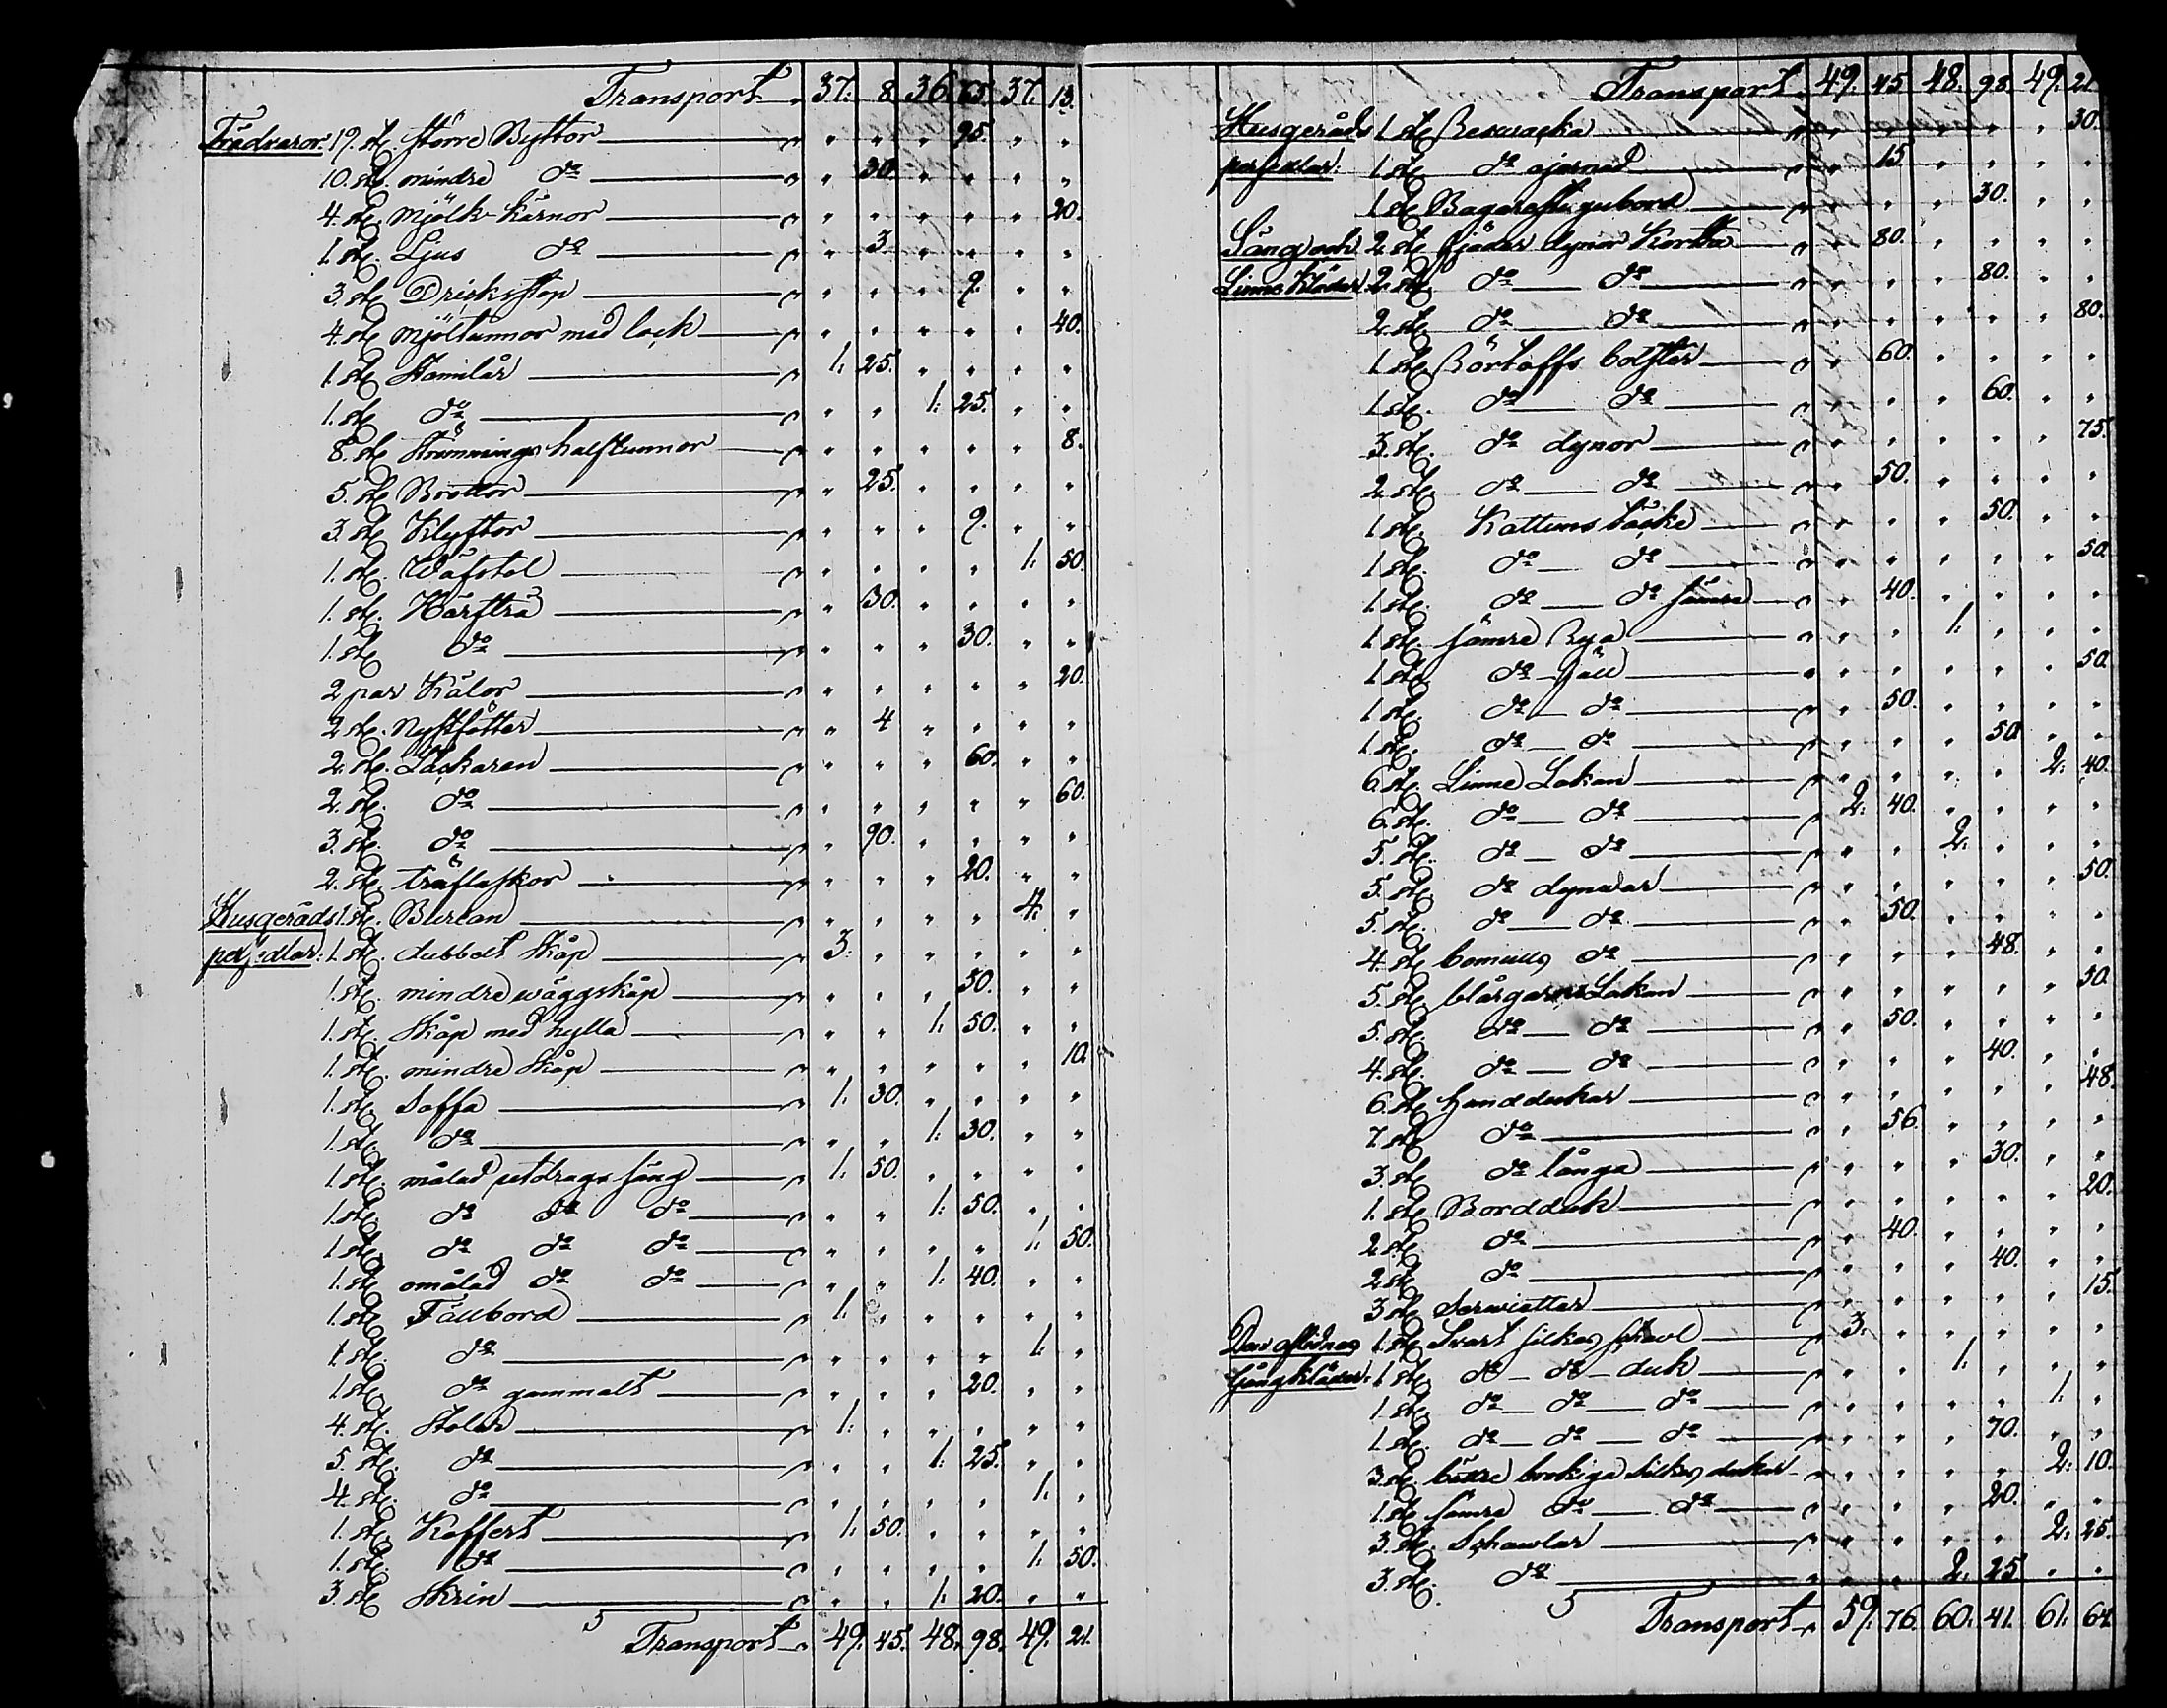 Transport 37. 8. 36. 65. 37. 13.
Trädvaror: 19. st. större Byttor " " " 95. " "
10. st. mindre do " 30. " " " "
4. st. Mjölk-Kärnor " " " " " 20.
1. st. Ljus do " 3. " " " "
3. st. Dricksstop " " " 9. " "
4. st. Mjöltunnor med lock " " " " " 40.
1. st. 1. 25. " " " "
1. st. do " " 1. 25. " "
8. st. Strömmings halftunnor " " " " " 8.
5. st. Bröttor " 25. " " " "
3. st. Klyftor " " " 9. " "
1. st. Wäfstol " " " " 1. 50.
1. st. " 30. " " " "
1. st. do " " " 30. " "
2 par Kälor " " " " " 20.
2 st. Nystfötter " 4 " " " "
2. st. Läckaren " " " 60. " "
2. st. do " " " " " 60.
3. st. do " 90. " " " "
2. st. träflaskor " " " 20. " "
Husgeråds 1. st. Burean " " " " 4. "
persedlar: 1. st. dubbelt Skåp 3. " " " " "
1. st. mindre wäggskåp " " " 50. " "
1. st. Skåp med hylla " " 1. 50. " "
1. st. mindre Skåp " " " " " 10.
1. st. Soffa 1. 30. " " " "
1. st. do " " 1. 30. " "
1. st. målad utdrags säng 1. 50. " " " "
1. st. do do do " " 1. 50. " "
1. st. do do do " " " " 1. 50.
1. st. omålad do do " " 1. 40. " "
1. st. Fällbord 1. " " " " "
1. st. do " " " " 1. "
1. st. do gammalt " " " 20. " "
4. st. Stolar 1. " " " " "
5. st. do " " 1. 25. " "
4. st. do " " " " 1. "
1. st. Koffert 1. 50. " " " "
1. st. do " " " " 1. 50.
3. st. Skrin " " 1. 20. " "
Transport 49. 45. 48. 98. 49. 21.
Transport 49. 45 48. 98. 49. 21
Husgeråds 1 st. " " " " " 30.
persedlar: 1 st. do " 15 " " " "
1 st. Bagarestugubord " " " 30. " "
Säng och 2 st. fjäder dynor Korta " 80. " " " "
Linne Kläder 2 st. do do " " " 80. " "
2. st. do do " " " " " 80.
1 st. bolster " 60. " " " "
1 st. do do " " " 60. " "
3. st. do dynor " " " " " 75.
2 st. do do " 50. " " " "
1 st. Kattuns täcke " " " 50. " "
1 st. do do " " " " " 50
1 st. do do sämre " 40. " " " "
1 st. sämre Rya " " 1. " " "
1 st. do fäll " " " " " 50
1 st. do do " 50. " " " "
1 st. do do " " " 50 " "
6 st. Linne Lakan " " " " 2. 40.
6. st. do do 2. 40. " " " "
5. st. do do " " 2. " " "
5. st. do dynwar " " " " " 50.
5. st. do do " 50. " " " "
4. st. bomulls do " " " 48. " "
5. st. blårgarns Lakan " " " " " 50.
5. st. do do " 50. " " " "
4. st. do do " " " 40. " "
6. st. handdukar " " " " " 48.
7 st. do " 56. " " " "
3. st. do långa " " " 30. " "
1. st. Bordduk " " " " " 20.
2 st. do " 40. " " " "
2 st. do " " " 40. " "
3 st. Serwietter " " " " " 15.
Den aflidnes 1. st. Svart silkes schavl 3. " " " " "
gångkläder: 1 st. do do duk " " 1. " " "
1 st. do do do " " " " 1. "
1 st. do do do " " " 70. " "
3. st. bättre brokiga silkes dukar " " " " 2. 10.
1 st. sämre do do " " " 20. " "
3. st. Schawlar " " " " 2. 25.
3. st. do " " 2. 25. " "
Transport 59. 76. 60. 41. 61. 64